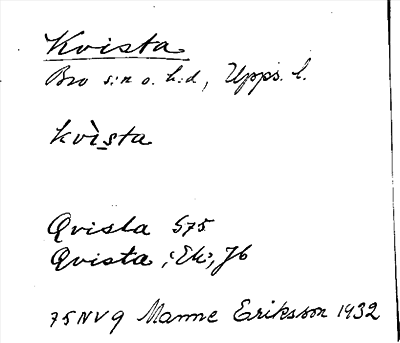 Kvista
Bro s:n o. h:d, Upps. l.
kvìsta
Qvista 575
Qvista ;Ek;, Jb
75NV9 Manne Eriksson 1932